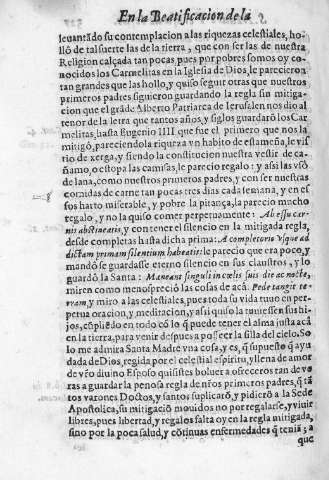 En la Beatificacion de la
leuantãdo su contemplacion a las riquezas celestiales, ho-
llò de tal suerte las de la tierra, que con ser las de nuestra
Religion calçada tan pocas, pues por pobres somos oy co-
nocidos los Carmelitas en la Iglesia de Dios, le parecieron
tan grandes que las hollo, y quiso seguir otras que nuestros
primeros padres siguieron guardando la regla sin mitiga-
cion que el grãde Alberto Patriarca de Ierusalen nos dio al
tenor de la letra que tantos años, y siglos guardarõ los Car
melitas, hasta Eugenio IIII que fue el primero que nos la
mitigò, pareciendola riqueza vn habito de estameña, le vis
tio de xerga, y siendo la constitucion nuestra vestir de ca-
ñamo, o estopa las camisas, le parecio regalo: y assi las vsò
de lana, como nuestros primeros padres, y con ser nuestras
comidas de carne tan pocas tres dias cada semana, y en es
sos harto miserable, y pobre la pitança, la parecio mucho
regalo, y no la quiso comer perpetuamente: Ab essu car-
nis abstineatis, y con tener el silencio en la mitigada regla,
desde completas hasta dicha prima: A completorio vsque ad
dictam primam silentium habeatis: le parecio que era poco, y
mandò se guardasse eterno silencio en sus claustros, y lo
guardò la Santa: Maneant singuli in cœlis suis die ac nocte,
miren como menospreciò las cosas de acà. Pede tangit te-
rram, y miro a las celestiales, pues toda su vida tuuo en per-
petua oracion, y meditacion, y assi quiso la tuuiessen sus hi-
jos, cõpliẽdo en todo cõ lo q̃ puede tener el alma justa acà
en la tierra, para venir despues a posseer la silla del cielo. So
lo me admira Santa Madre vna cosa, y es, q̃ supuesto q̃ ayu
dada de Dios, regida por el celestial espiritu, y llena de amor
de vr̃o diuino Esposo quisistes boluer a ofreceros tan de ve
ras a guardar la penosa regla de nr̃os primeros padres, q̃ tã
tos varones Doctos, y santos suplicarõ, y pidierõ a la Sede
Apostolica, su mitigaciõ mouidos no por regalarse, y viuir
libres, pues libertad, y regalos falta oy en la regla mitigada,
sino por la poca salud, y cõtinuas enfermedades q̃ teniã; a
que